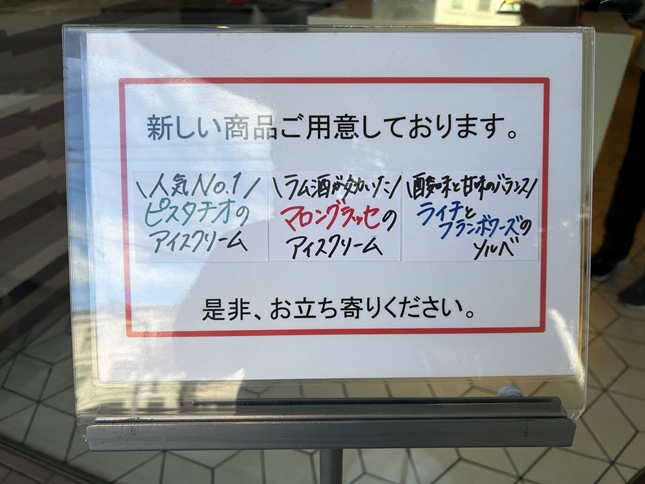 新しい商品ご用意しております。
\人気No.1/
ピスタチオの
アイスクリーム
\ラム酒が効いた/
マロングラッセの
アイスクリーム
\酸味と甘味のバランス/
ライチと
フランボワーズの
ソルベ
是非、お立ち寄りください。